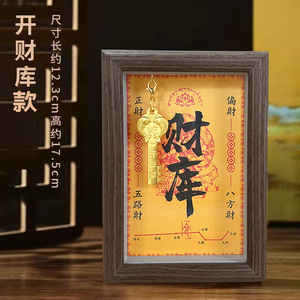 开财库款
尺寸长约12.3cm高约17.5cm
正财
偏财
财库
五路財
八方財